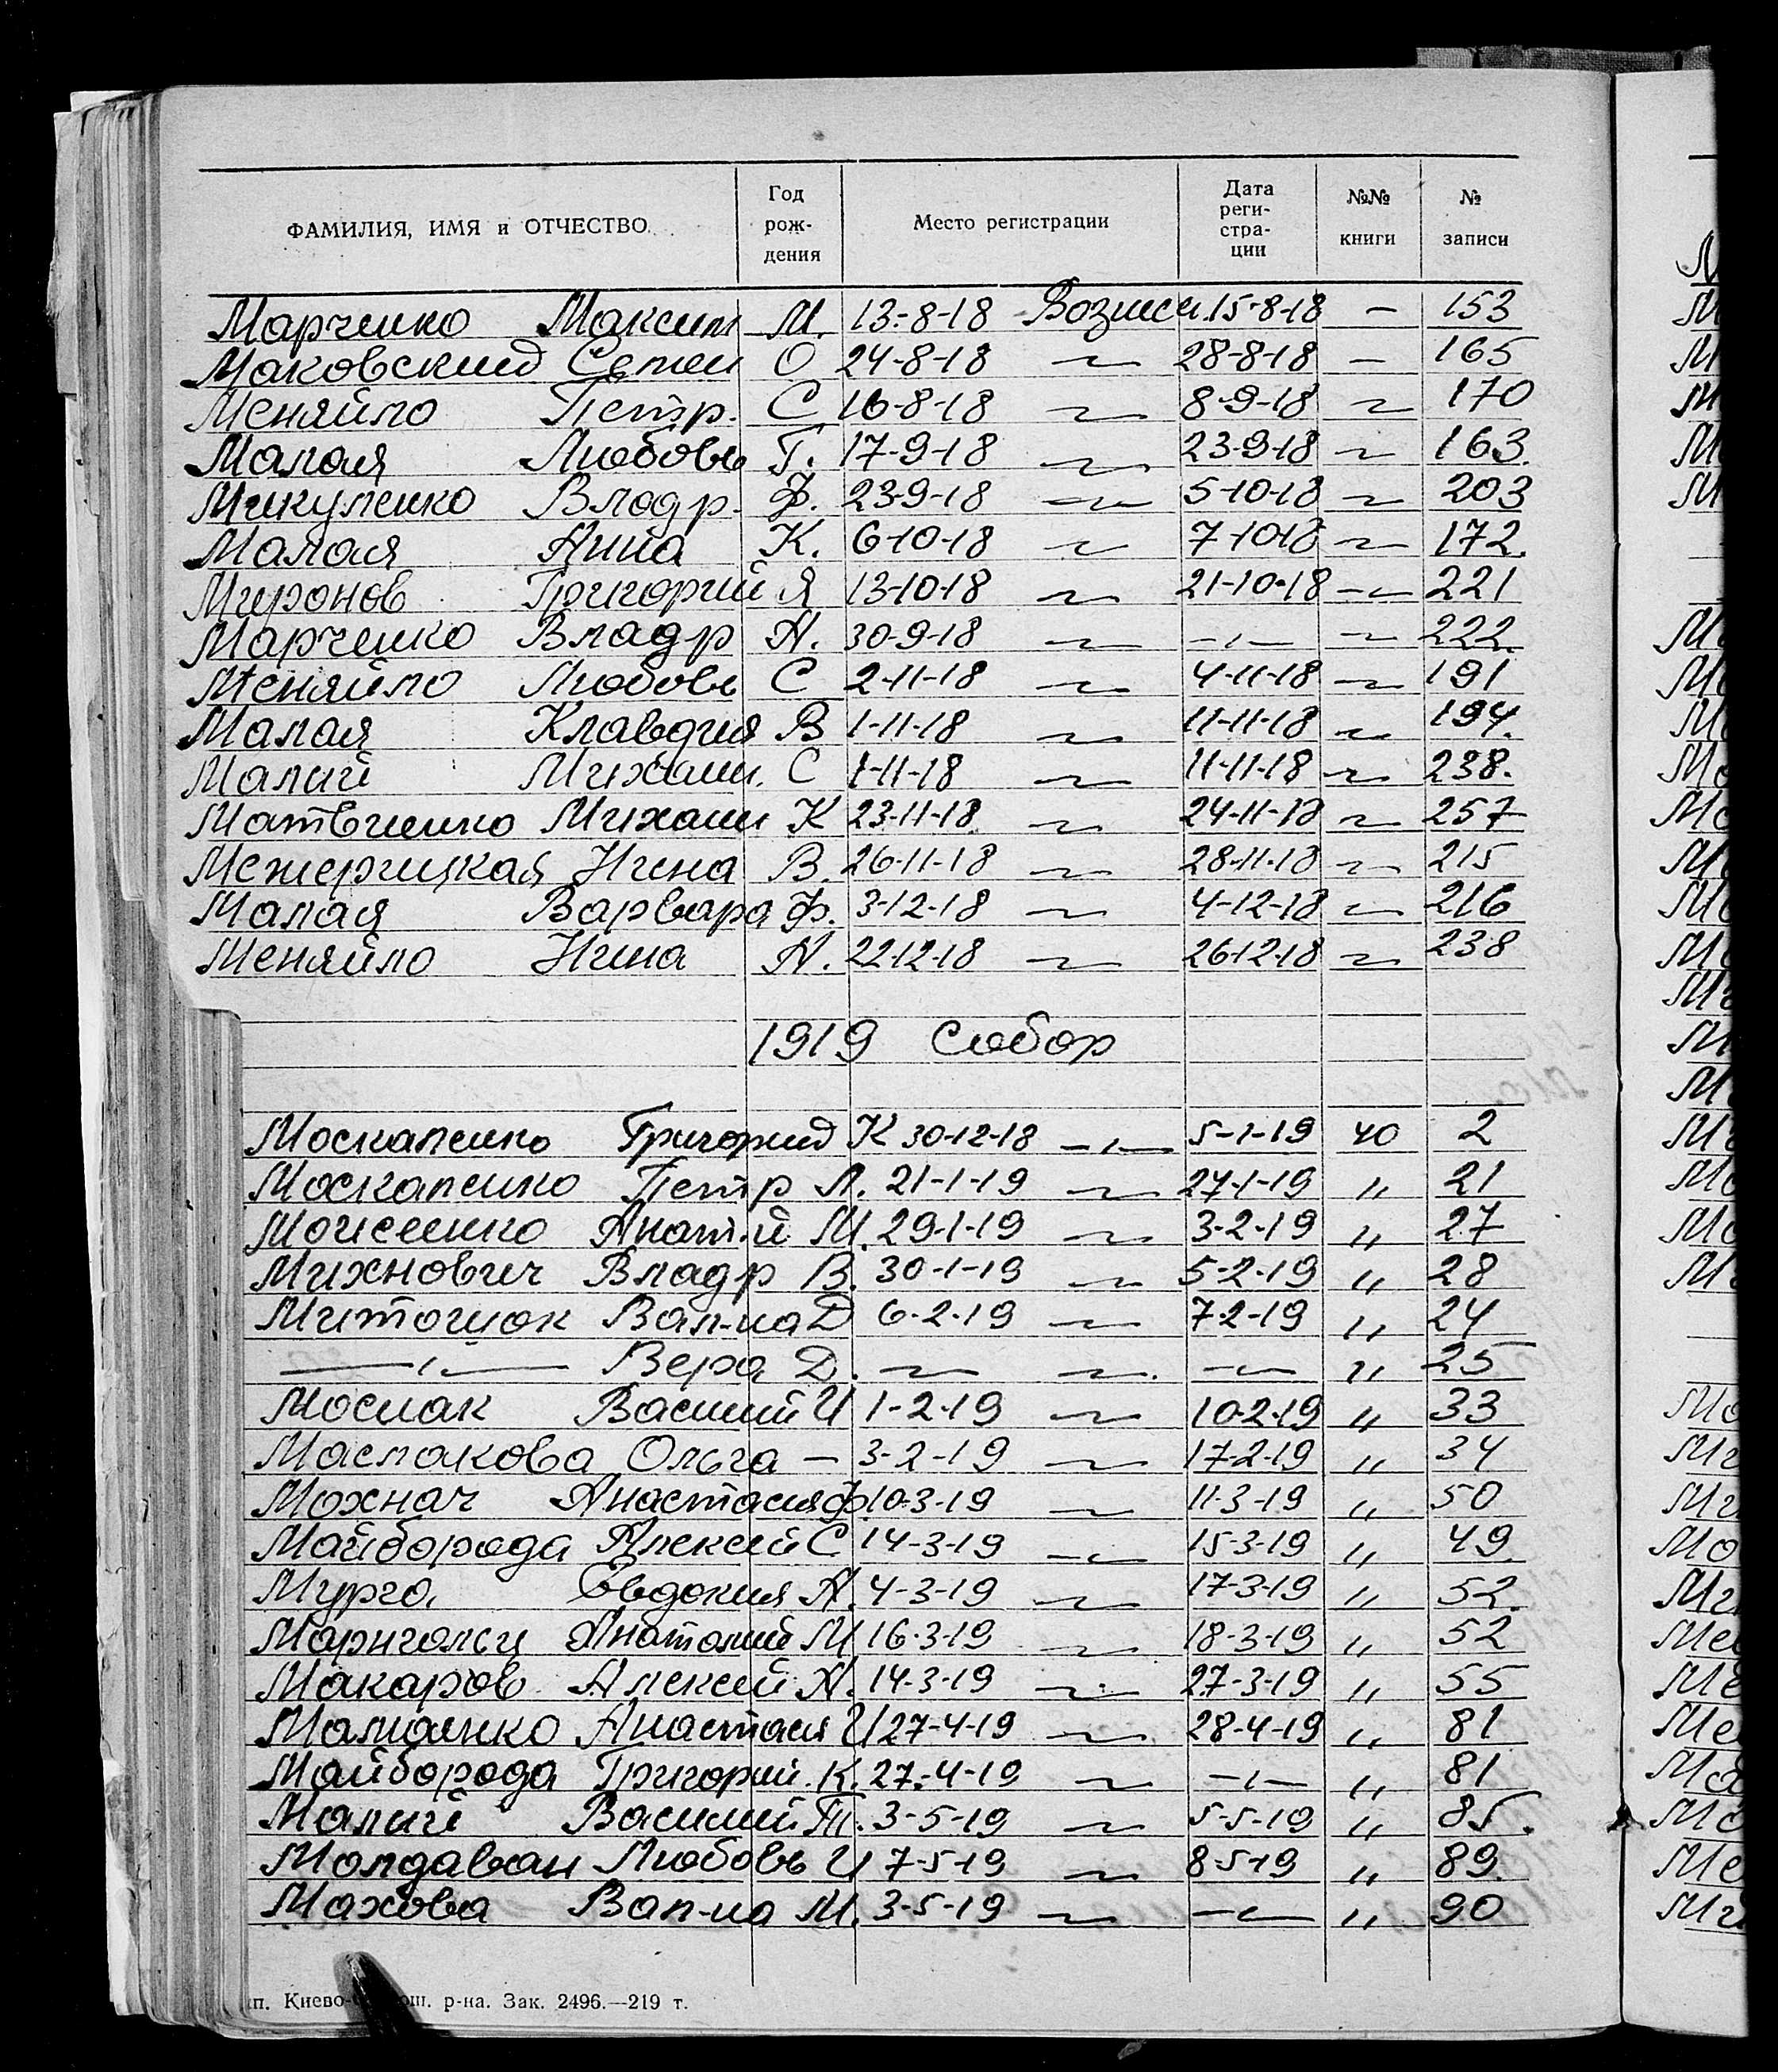 ФАМИЛИЯ, ИМЯ и ОТЧЕСТВО Год рождения Место регистрации Дата регистрации №№ книги № записи
Марченко Максим М. 13-8-18 Вознесен. 15-8-18 — 153
Маковский Семен О 24-8-18 —〃— 28-8-18 — 165
Меняйло Петр. С 16-8-18 —〃— 8-9-18 —〃— 170
Малая Любовь Г. 17-9-18 —〃— 23-9-18 —〃— 163.
Микуленко Владр. Ф. 23-9-18 —〃— 5-10-18 —〃— 203
Малая Анна К. 6-10-18 —〃— 7-10-18 —〃— 172.
Миронов Григорий Я 13-10-18 —〃— 21-10-18 —〃— 221
Марченко Владр А. 30-9-18 —〃— —〃— —〃— 222.
Меняйло Любовь С 2-11-18 —〃— 4-11-18 —〃— 191
Малая Клавдия В 1-11-18 —〃— 11-11-18 —〃— 194.
Малий Михаил. С 1-11-18 —〃— 11-11-18 —〃— 238.
Матвиенко Михаил К 23-11-18 —〃— 24-11-18 —〃— 257
Межерицкая Нина В. 26-11-18 —〃— 28-11-18 —〃— 215
Малая Варвара Ф. 3-12-18 —〃— 4-12-18 —〃— 216
Меняйло Нина А. 22-12-18 —〃— 26-12-18 —〃— 238
1919 Собор
Москаленко Григорий К 30-12-18 —〃— 5-1-19 40 2
Москаленко Петр Л. 21-1-19 —〃— 27-1-19 〃 21
Моисеенко Анат.й М. 29-1-19 —〃— 3-2-19 〃 27
Михнович Владр В. 30-1-19 —〃— 5-2-19 〃 28
Митошок Вал-на Д 6-2-19 —〃— 7-2-19 〃 24
—〃— Вера Д. —〃— —〃— —〃— 〃 25
Мосиак Василий И 1-2-19 —〃— 10-2-19 〃 33
Маслакова Ольга — 3-2-19 —〃— 17-2-19 〃 34
Мохнач Анастасия Ф. 10-3-19 —〃— 11-3-19 〃 50
Майборода Алексей С 14-3-19 —〃— 15-3-19 〃 49.
Мурга Евдокия А. 4-3-19 —〃— 17-3-19 〃 52.
Анатолий М 16-3-19 —〃— 18-3-19 〃 52
Макаров Алексей А. 14-3-19 —〃— 27-3-19 〃 55
Анастасия И 27-4-19 —〃— 28-4-19 〃 81
Майборода Григорий. К. 27-4-19 —〃— —〃— 〃 81
Малий Василий Т. 3-5-19 —〃— 5-5-19 〃 85.
Молдаван Любовь И 7-5-19 —〃— 8-5-19 〃 89.
Махова Вал-на М. 3-5-19 —〃— —〃— 〃 90
р-на. Зак. 2496.—219 т.